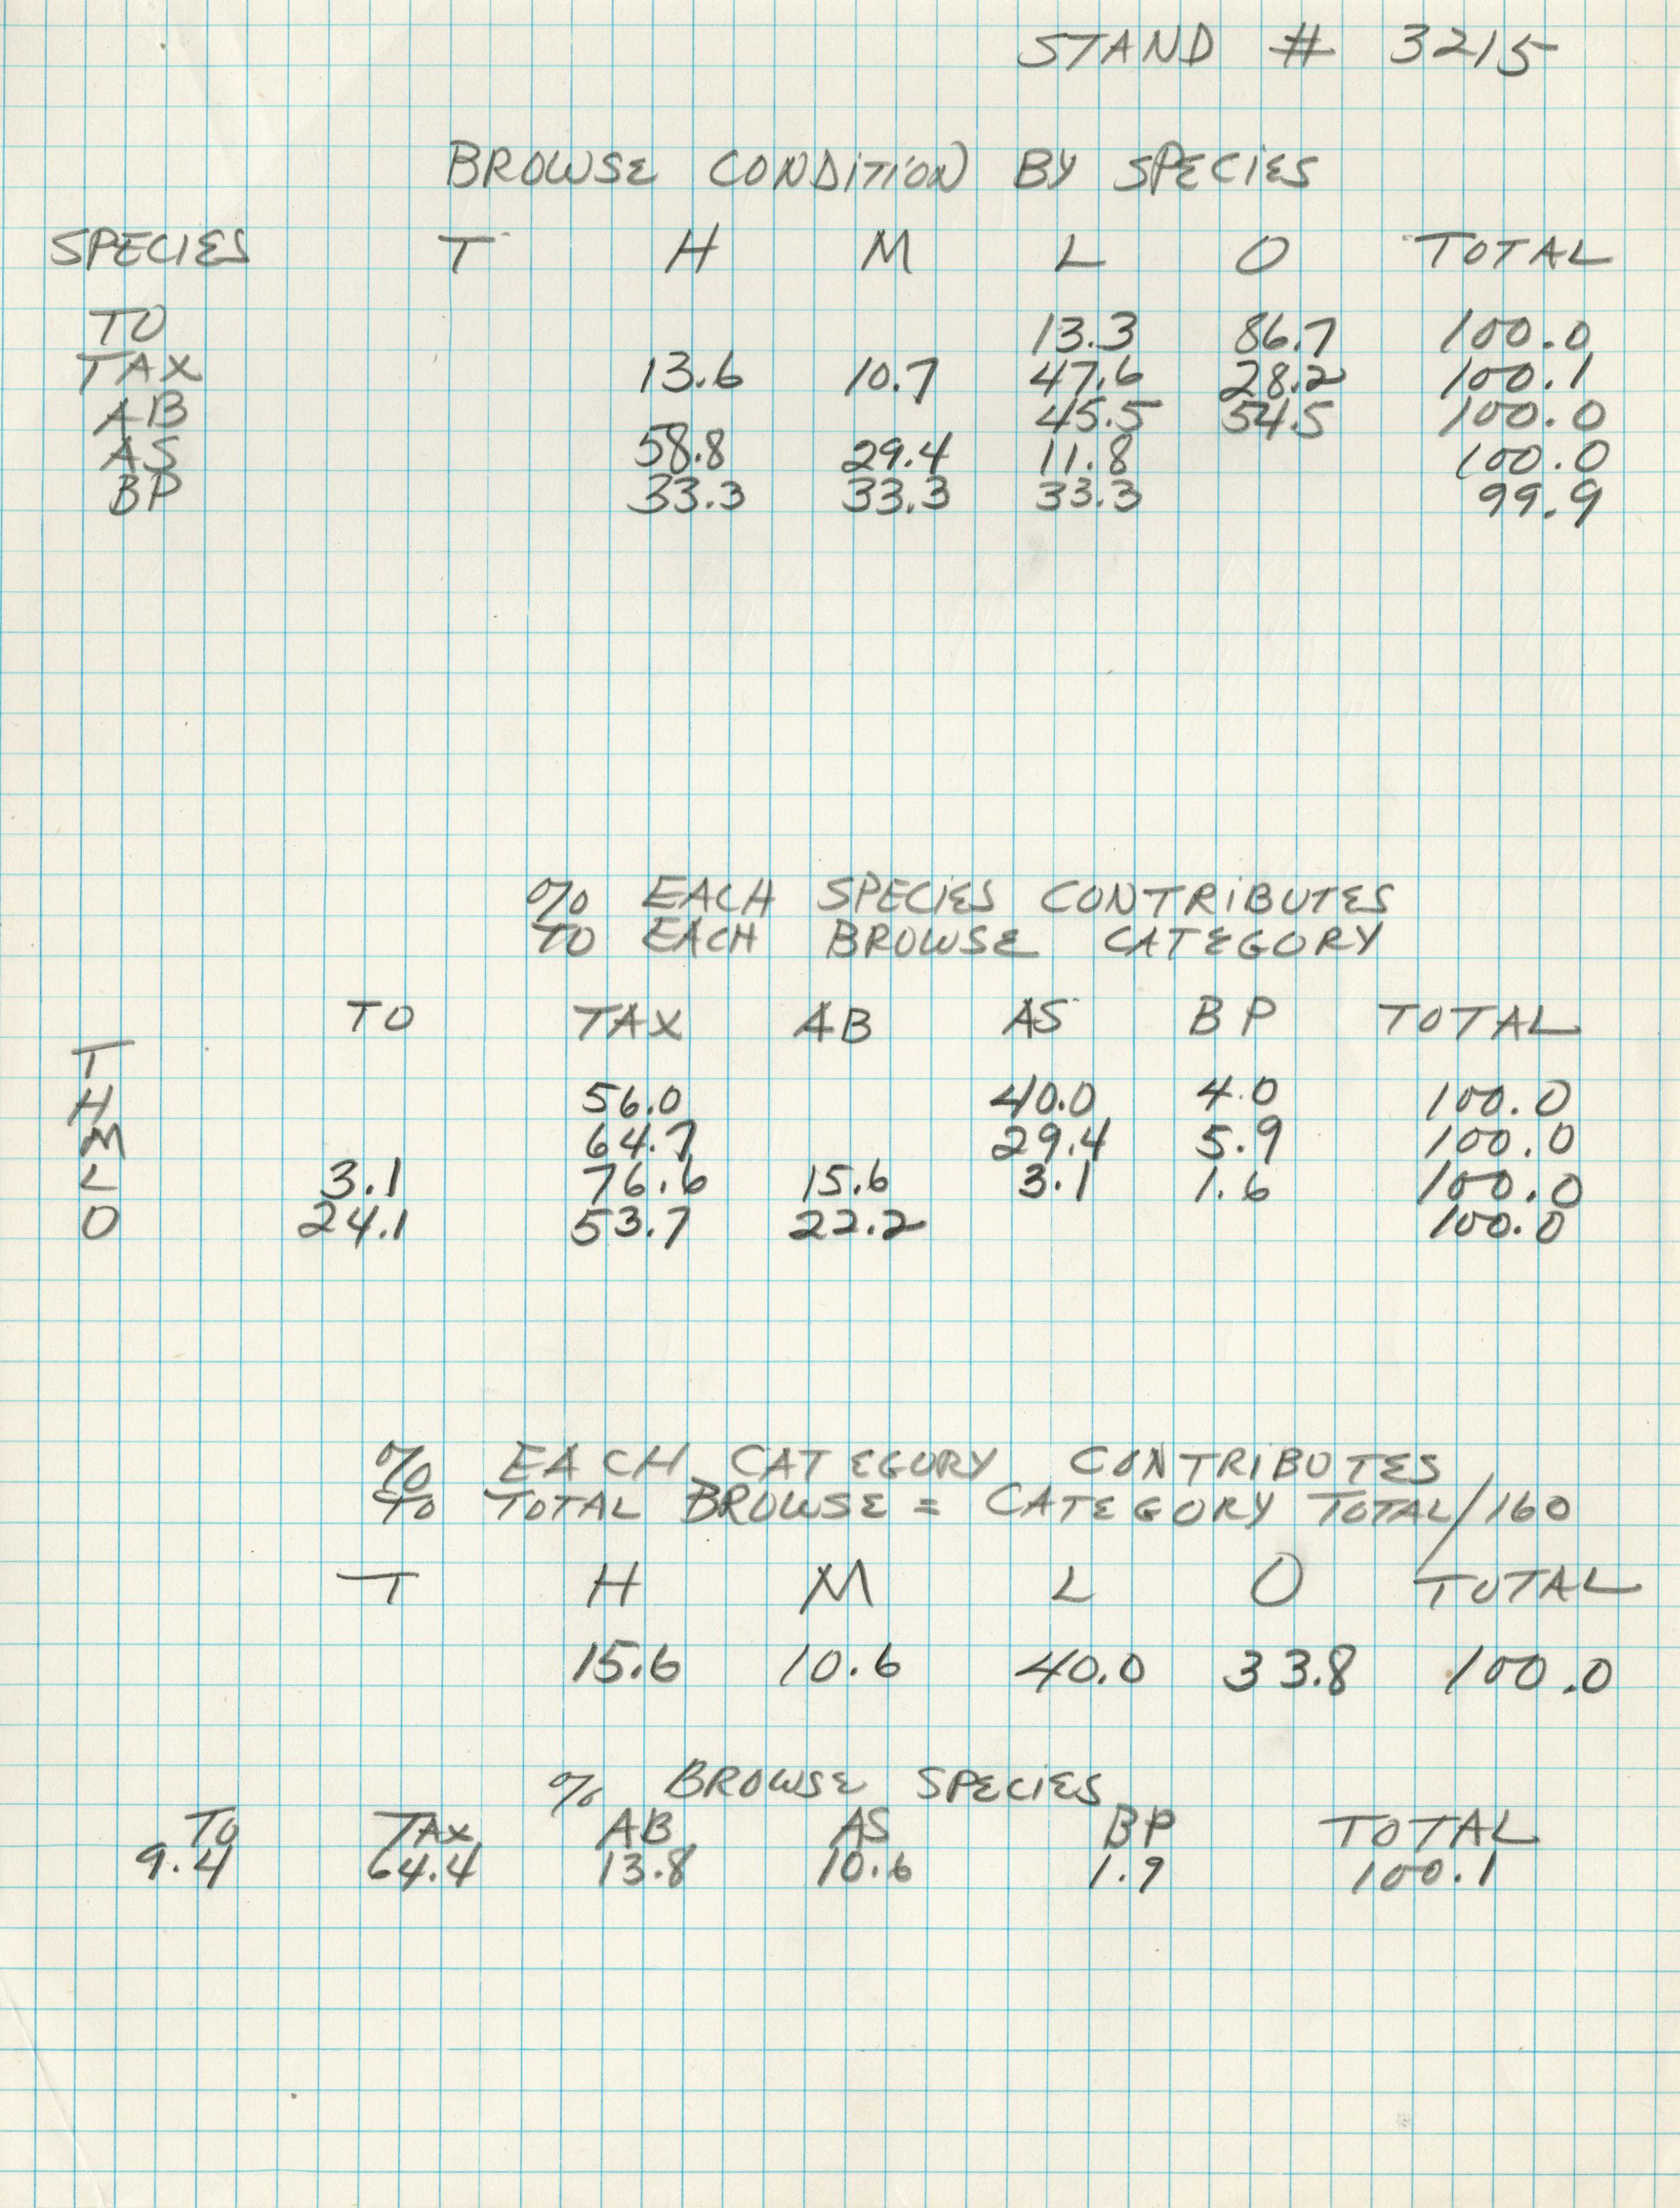 STAND # 3215
BROWSE CONDITION BY SPECIES
SPECIES T H M L O TOTAL
TO 13.3 86.7 100.0
TAX 13.6 10.7 47.6 28.2 100.1
AB 45.5 54.5 100.0
AS 58.8 29.4 11.8 100.0
BP 33.3 33.3 33.3 99.9
% EACH SPECIES CONTRIBUTES
TO EACH BROWSE CATEGORY
TO TAX AB AS BP TOTAL
T
H 56.0 40.0 4.0 100.0
M 64.7 29.4 5.9 100.0
L 3.1 76.6 15.6 3.1 1.6 100.0
O 24.1 53.7 22.2 100.0
% EACH CATEGORY CONTRIBUTES
TO TOTAL BROWSE = CATEGORY TOTAL/160
T H M L O TOTAL
15.6 10.6 40.0 33.8 100.0
% BROWSE SPECIES
TO TAX AB AS BP TOTAL
9.4 64.4 13.8 10.6 1.9 100.1